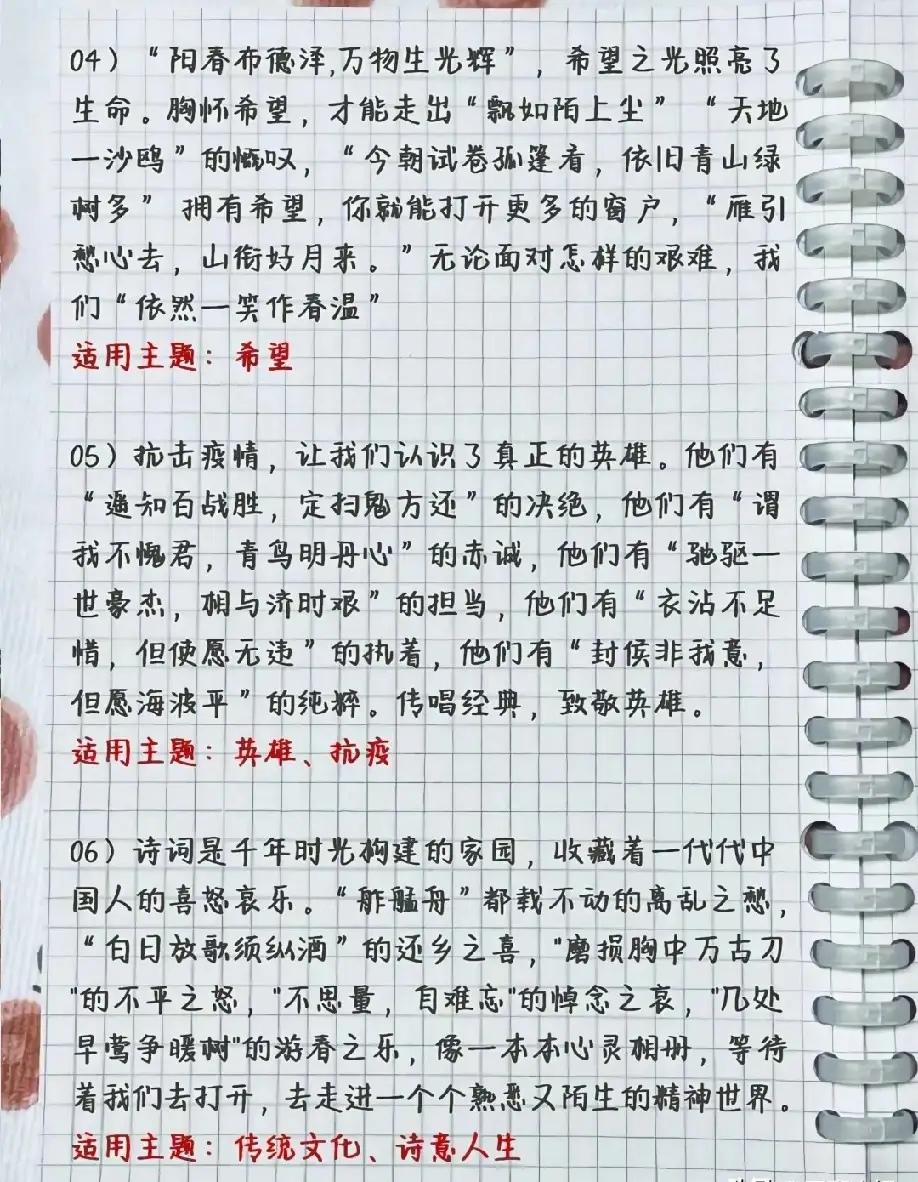 04）“阳春布德泽,万物生光辉”，希望之光照亮了
生命。胸怀希望，才能走出“飘如陌上尘”“天地
一沙鸥”的慨叹，“今朝试卷孤篷看，依旧青山绿
树多” 拥有希望，你就能打开更多的窗户，“雁引
愁心去，山衔好月来。”无论面对怎样的艰难，我
们“依然一笑作春温”
适用主题：希望
05）抗击疫情，让我们认识了真正的英雄。他们有
“遥知百战胜，定扫鬼方还”的决绝，他们有“谓
我不愧君，青鸟明丹心”的赤诚，他们有“驰驱一
世豪杰，相与济时艰”的担当，他们有“衣沾不足
惜，但使愿无违”的执着，他们有“封侯非我意，
但愿海波平”的纯粹。传唱经典，致敬英雄。
适用主题：英雄、抗疫
06）诗词是千年时光构建的家园，收藏着一代代中
国人的喜怒哀乐。“舴艋舟”都载不动的离乱之愁，
“白日放歌须纵酒”的还乡之喜，"磨损胸中万古刀
"的不平之怒，"不思量，自难忘"的悼念之哀，"几处
早莺争暖树"的游春之乐，像一本本心灵相册，等待
着我们去打开，去走进一个个熟悉又陌生的精神世界。
适用主题：传统文化、诗意人生